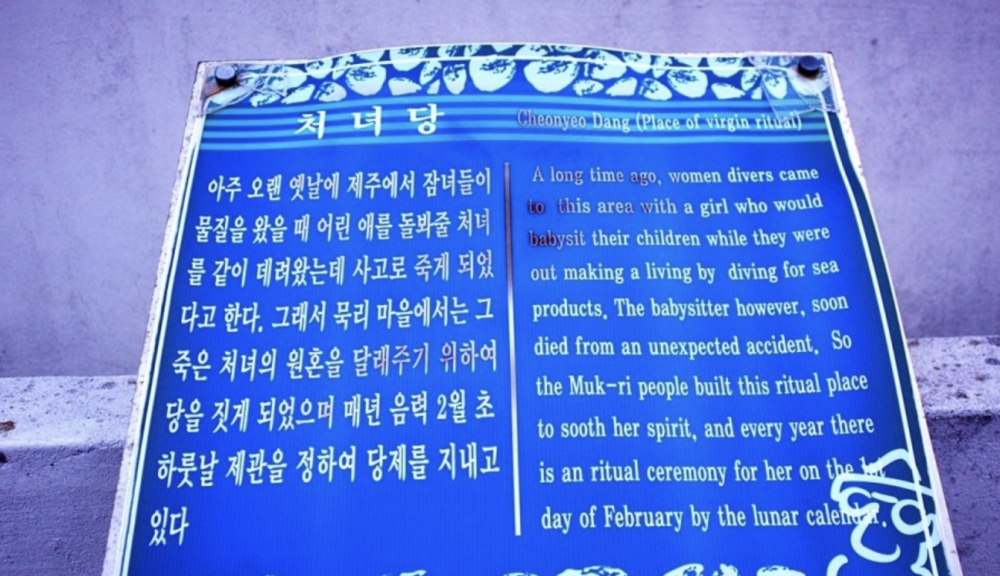 처 녀 당
아주 오랜 옛날에 제주에서 잠녀들이
물질을 왔을 때 어린 애를 돌봐줄 처녀
를 같이 데려왔는데 사고로 죽게 되었
다고 한다. 그래서 묵리 마을에서는 그
죽은 처녀의 원혼을 달래주기 위하여
당을 짓게 되었으며 매년 음력 2월 초
하룻날 제관을 정하여 당제를 지내고
있다
Cheonyeo Dang (Place of virgin ritual)
A long time ago, women divers came
to this area with a girl who would
babysit their children while they were
out making a living by diving for sea
products. The babysitter however, soon
died from an unexpected accident. So
the Muk-ri people built this ritual place
to sooth her spirit, and every year there
is an ritual ceremony for her on the
day of February by the lunar calendar.